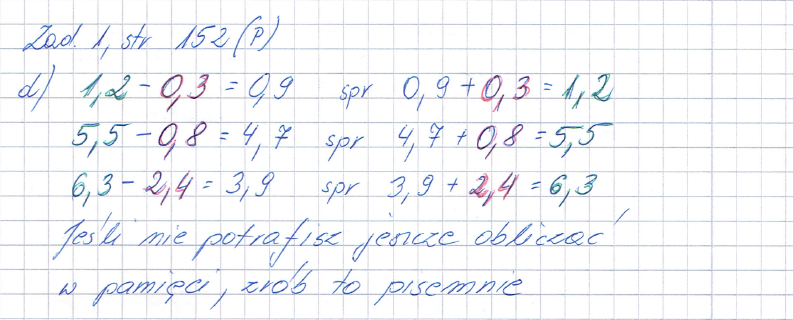 Zad. 1, str 152 (P)
d) 1,2 - 0,3 = 0,9 spr 0,9 + 0,3 = 1,2
5,5 - 0,8 = 4,7 spr 4,7 + 0,8 = 5,5
6,3 - 2,4 = 3,9 spr 3,9 + 2,4 = 6,3
Jeśli nie potrafisz jeszcze obliczać
w pamięci, zrób to pisemnie